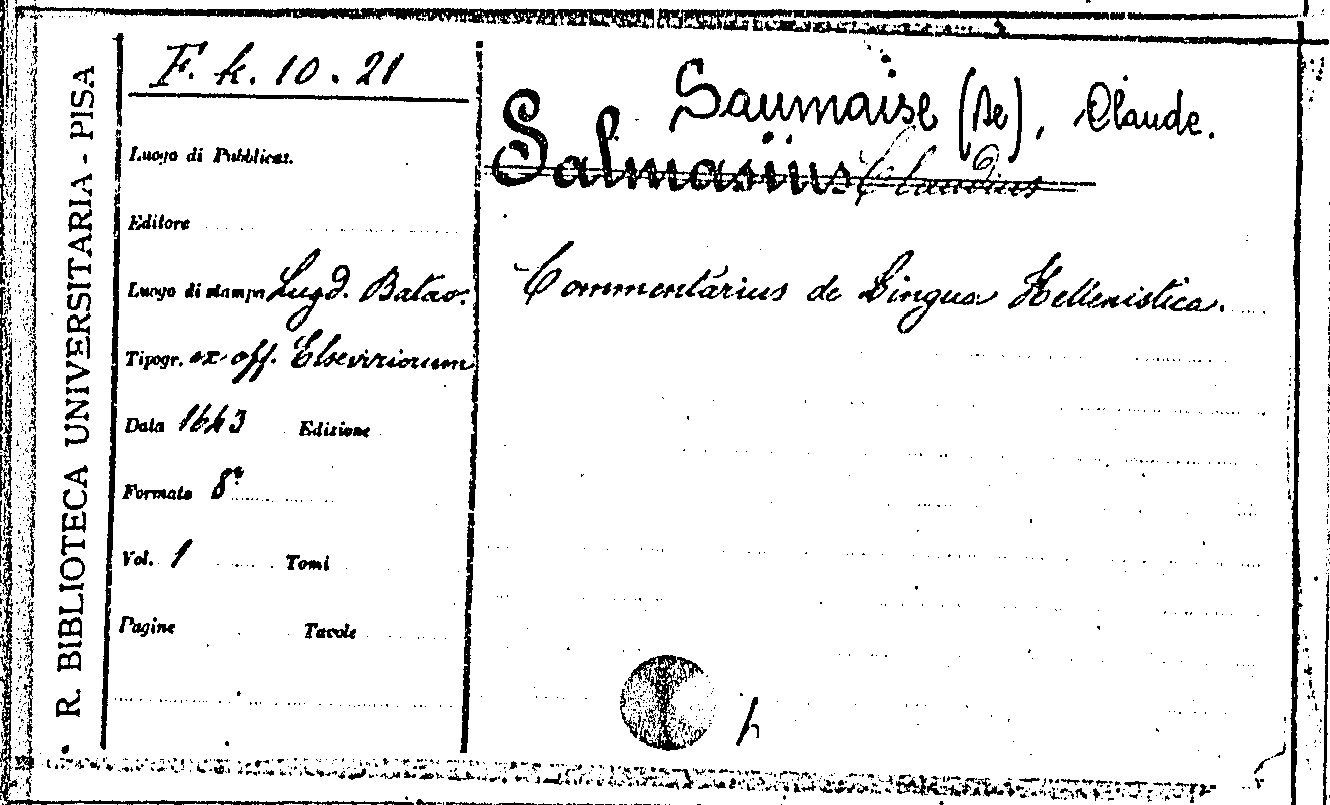 R. BIBLIOTECA UNIVERSITARIA - PISA
F. k. 10. 21
Luogo di Pubblicaz.
Editore
Luogo di stampa Lugd. Batav.
Tipogr. ex off. Elseviriorum
Data 1643 Edizione
Formato 8°
Vol. 1 Tomi
Pagine Tavole
Saumaise (De), Claude.
Salmasius Claudius
Commentarius de Lingua Hellenistica.